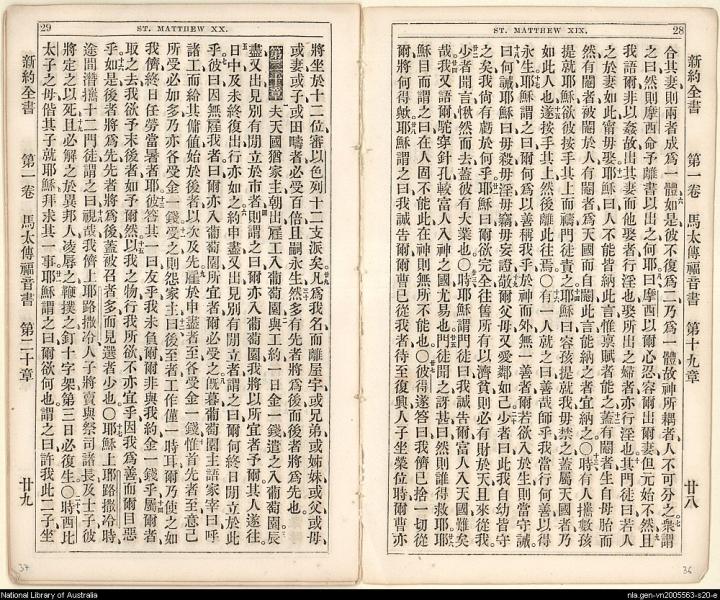 ST. MATTHEW XIX. 28
新約全書 第一卷 馬太傳福音書 第十九章 廿八
合其妻、則兩者成為一體。如是彼不復為二、乃為一體、故神所耦者、人不可分之。衆謂
之曰、然則摩西命予離書以出之、何耶。曰、摩西以爾心忍、容爾出爾妻、但元始不然。且
我語爾、非以姦故、出其妻而他娶者、行淫也、娶所出之婦者、亦行淫也。其門徒曰、若人
之於妻如此、甯毋娶。耶穌曰、人不能皆納此言、惟稟賦者能之。蓋有閹者、生自母胎而
然、有閹者、被閹於人、有閹者、為天國而自閹、此言能納之者、宜納之。○時有人攜數孩
提就耶穌、欲彼按手其上而禱、門徒責之。耶穌曰、容孩提就我、毋禁之、蓋屬天國者乃
如此人也、遂按手其上、然後離此往焉。○有一人就之曰、善哉師乎、我當行何善以得
永生。耶穌謂之曰、爾何為以善稱我乎、於神而外、無一善者、爾若欲入於生、則當守誡。
曰、何誡。耶穌曰、毋殺、毋淫、毋竊、毋妄證、敬爾父母、又愛鄰如己。少者曰、此我自幼皆守
之矣、我尚有虧於何乎。耶穌曰、爾欲完全、往舊所有以濟貧、則必有財於天、且來從我。
少者聞言、愀然而去、蓋彼有大業也。○時耶穌謂門徒曰、我誠告爾、富人入天國難矣
哉。我又語爾、駝穿針孔、較富人入神之國尤易也。門徒聞之、訝甚曰、然則誰得救耶。耶
穌目而謂之曰、在人固不能此、在神則無所不能也。○彼得遂答曰、我儕已捨一切從
爾、將何得歟。耶穌謂之曰、我誠告爾、爾曹已從我者、待至復興、人子坐榮位時、爾曹亦
36
29 ST. MATTHEW XX.
將坐於十二位、審以色列十二支派矣。凡為我名而離屋宇、或兄弟、或姊妹、或父、或母、
或妻、或子、或田疇者、必受百倍、且嗣永生。然多有先者將為後、而後者將為先也。
第二十章 夫天國猶家主、朝出雇工入葡萄園、與工約一日金一錢、遣之入葡萄園。辰
盡又出、見別有閒立於市者、則謂之曰、爾亦入葡萄園、我將以所宜者予爾、其人遂往。
日中及未終復出、行亦如之。約申盡又出、見別有閒立者、謂之曰、爾何終日閒立於此
乎。彼曰、因無雇我者。曰、爾亦入葡萄園、所宜者爾必受之。既暮、葡萄園主語家宰曰、呼
諸工而給其傭值、始於後者、以次及先。雇於申盡者至、各受金一錢、惟首先者至、意己
所受必加多、乃亦各受金一錢。受之則怨家主曰、後至者工作僅一時耳、爾乃使之如
我儕終日任勞當暑者耶。彼答其一曰、友乎、我未負爾、爾非與我約金一錢乎。屬爾者
取之去、我欲予末後者如予爾然。以我之物行我所欲、不亦宜乎、因我為善而爾目惡
乎。如是後者將為先、先者將為後、蓋被召者多、而見選者少也。○耶穌上耶路撒冷時、
途間潛攜十二門徒謂之曰、視哉、我儕上耶路撒冷、人子將賣與祭司諸長及士子、彼
將定之以死、且必解之於異邦人、凌辱之、鞭撲之、釘十字架、第三日必復生。○時西比
太子之母、偕其子就耶穌、拜求其一事。耶穌謂之曰、爾欲何也。謂之曰、許我此二子坐
新約全書 第一卷 馬太傳福音書 第二十章 廿九
37
National Library of Australia
nla.gen-vn2005563-s20-e